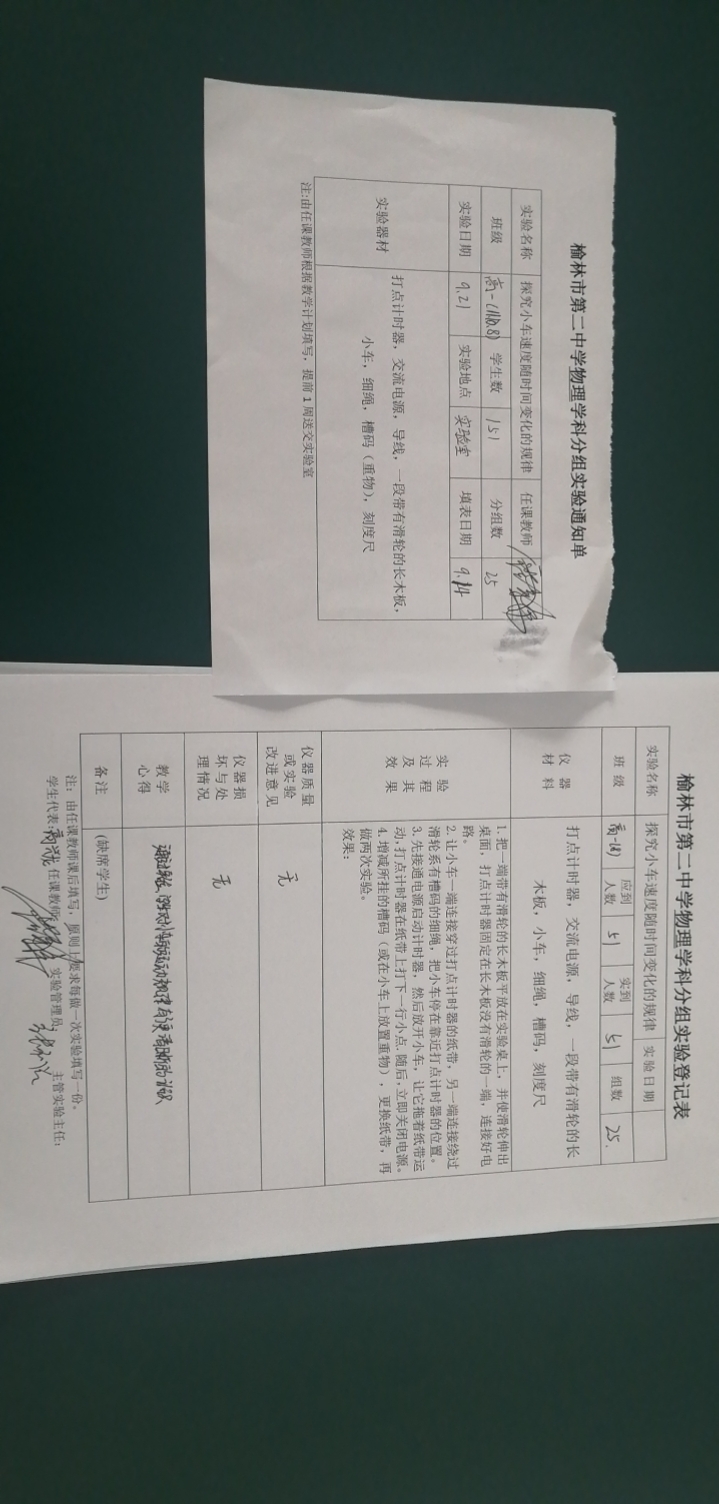 榆林市第二中学物理学科分组实验通知单
实验名称 探究小车速度随时间变化的规律 任课教师
班级 学生数 151 分组数 25
实验日期 9.21 实验地点 实验室 填表日期 9.14
实验器材 打点计时器，交流电源，导线，一段带有滑轮的长木板，
小车，细绳，槽码（重物），刻度尺
注:由任课教师根据教学计划填写，提前1周送交实验室
榆林市第二中学物理学科分组实验登记表
实验名称 探究小车速度随时间变化的规律 实验日期
班级 应到人数 51 实到人数 51 组数 25.
仪器材料 打点计时器，交流电源，导线，一段带有滑轮的长
木板，小车，细绳，槽码，刻度尺
实验过程及其效果
1.把一端带有滑轮的长木板平放在实验桌上，并使滑轮伸出
桌面，打点计时器固定在长木板没有滑轮的一端，连接好电
路。
2.让小车一端连接穿过打点计时器的纸带，另一端连接绕过
滑轮系有槽码的细绳，把小车停在靠近打点计时器的位置。
3.先接通电源启动计时器，然后放开小车，让它拖着纸带运
动,打点计时器在纸带上打下一行小点.随后,立即关闭电源。
4.增减所挂的槽码（或在小车上放置重物），更换纸带，再
做两次实验。
效果：
仪器质量或实验改进意见 无
仪器损坏与处理情况 无
教学心得
备注 (缺席学生)
注：由任课教师课后填写，原则上要求每做一次实验填写一份。
学生代表: 任课教师: 实验管理员: 主管实验主任: